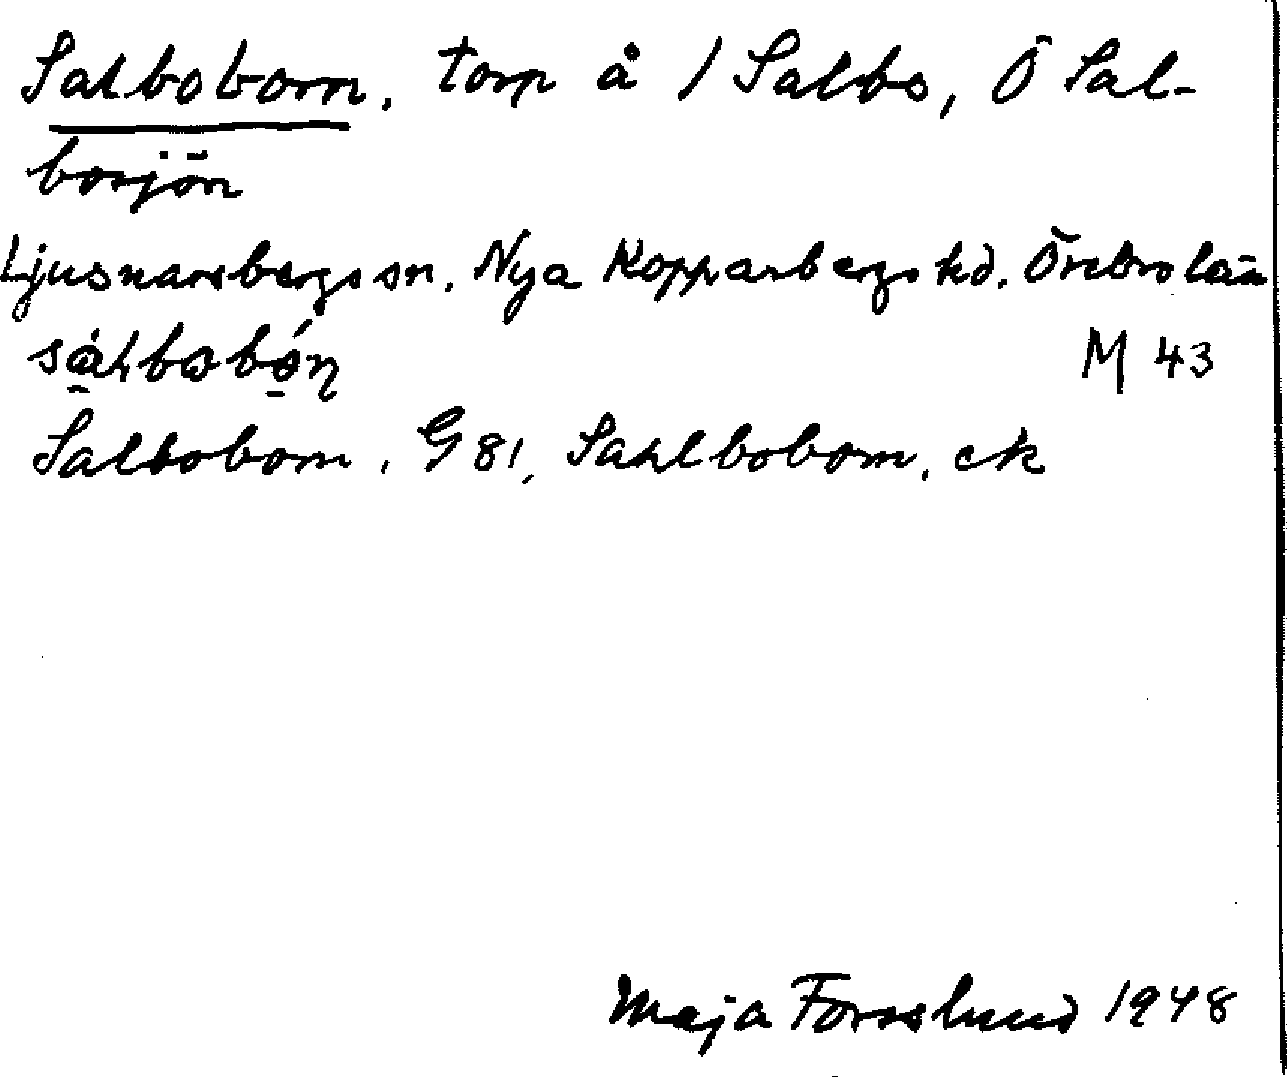 Salboborn, torp å 1 Salbo, Ö Sal-
bosjön
Ljusnarsbergs sn. Nya Kopparbergs hd. Örebro län
M 43
Salbobom. G 81, Sahlbobom. ek
Maja Forsslund 1948